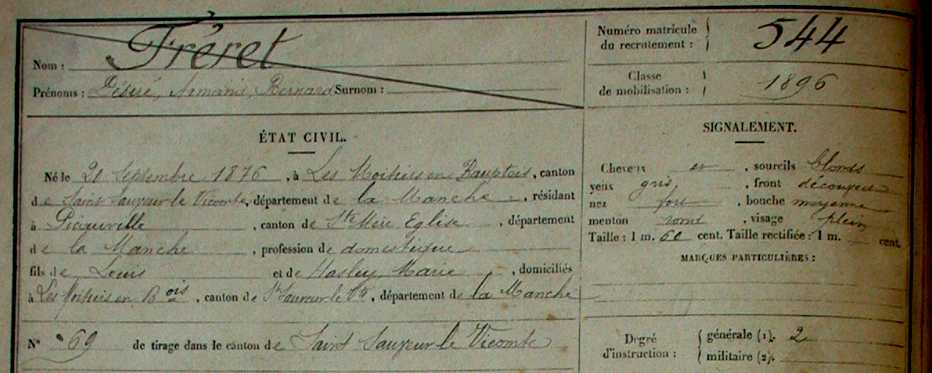 Nom : Fréret
Prénoms : Désiré, Armand, Bernard Surnom :
Numéro matricule du recrutement : 544
Classe de mobilisation : 1896
ÉTAT CIVIL.
Né le 20 Septembre 1876, à Les Moitiers en Bauptois, canton
de Saint Sauveur le Vicomte, département de la Manche, résidant
à Picauville, canton de Ste Mère Eglise, département
de la Manche, profession de domestique
fils de Louis et de Hasley Marie, domiciliés
à Les Moitiers en Bois, canton de St Sauveur le Vte, département de la Manche
N° 69 de tirage dans le canton de Saint Sauveur le Vicomte
SIGNALEMENT.
Cheveux et, sourcils blonds
yeux gris, front découvert
nez fort, bouche moyenne
menton rond, visage plein
Taille : 1 m. 60 cent. Taille rectifiée : 1 m. cent.
MARQUES PARTICULIÈRES :
Degré d'instruction : générale (1). 2
militaire (2).